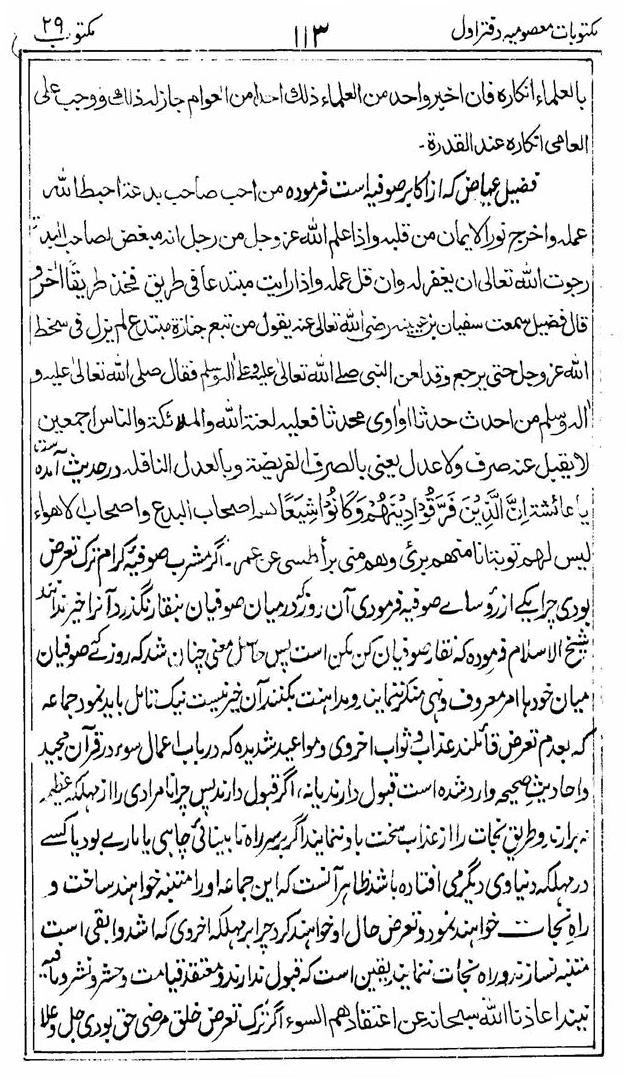 مکتوبات معصومیہ دفتر اول
۱۱۳
مکتوب ۲۹
بالعلماء انکارہ فان اخبر واحد من العلماء ذلك احدا من العوام جاز لہ ذلك ووجب علی
العامی انکارہ عند القدرة۔
فضیل عیاض کہ از اکابر صوفیہ است فرمودہ من احب صاحب بدعة احبط الله
عملہ واخرج نور الایمان من قلبہ واذا علم الله عز وجل من رجل انہ مبغض لصاحب البدعة
رجوت الله تعالی ان یغفر لہ وان قل عملہ واذا رایت مبتدعا فی طریق فخذ طریقًا اٰخر و
قال فضیل سمعت سفیان بن عیینہ رضی الله تعالی عنہ یقول من تبع جنازة مبتدع لم یزل فی سخط
الله عز وجل حتی یرجع وقد لعن النبی صلی الله تعالی علیہ وعلی آلہ وسلم فقال صلی الله تعالی علیہ و
اٰلہ وسلم من احدث حدثا او اوی محدثا فعلیہ لعنة الله والملائکة والناس اجمعین
لا یقبل عنہ صرف ولا عدل یعنی بالصرف الفریضة وبالعدل النافلہ در حدیث آمدہ است
یا عائشة اِنَّ الَّذِیْنَ فَرَّقُوْا دِیْنَهُمْ وَکَانُوْا شِیَعًا اصحاب البدع واصحاب الاهواء
لیس لهم توبة انا منهم بریٔ وهم منی برأ عن عمر۔ اگر مشرب صوفیۂ کرام ترک تعرض
بودی چرا یکے از رؤسائے صوفیہ فرمودی آن روز کہ درمیان صوفیان نقار نگذرد آنرا خیر ندانند
شیخ الاسلام فرمودہ کہ نقار صوفیان کن مکن است پس حاصل معنی چنان شد کہ روزے کہ صوفیان
میان خود ہا امر معروف و نہی منکر ننمایند و مداہنت بکنند آن خیر نیست نیک تامل باید نمود جماعہ
کہ بعدم تعرض قائلند عذاب و ثواب اخروی و مواعید شدیدہ کہ در باب اعمال سوء در قرآن مجید
و احادیث صحیحہ وارد شدہ است قبول دارند یا نہ، اگر قبول دارند پس چرا نامرادی را از مہلکہ عظیمہ
نہ برارند و طریق نجات را از عذاب سخت باو ننمایند اگر بر سر راہ نا بینائی چاہی یا مارے بود یا کسے
در مہلکہ دنیاوی دیگر می افتادہ باشد ظاہر آنست کہ این جماعہ او را متنبہ خواہند ساخت و
راہ نجات خواہند نمود و تعرض حال او خواہند کرد چرا بر مہلکہ اخروی کہ اشد وابقی است
متنبہ نسازند و راہ نجات ننمایند یقین است کہ قبول ندارند و معتقد قیامت و حشر و نشر و ما فیہ
نیند اعاذنا الله سبحانہ عن اعتقادهم السوء اگر ترک تعرض خلق مرضی حق بودی جل و علا